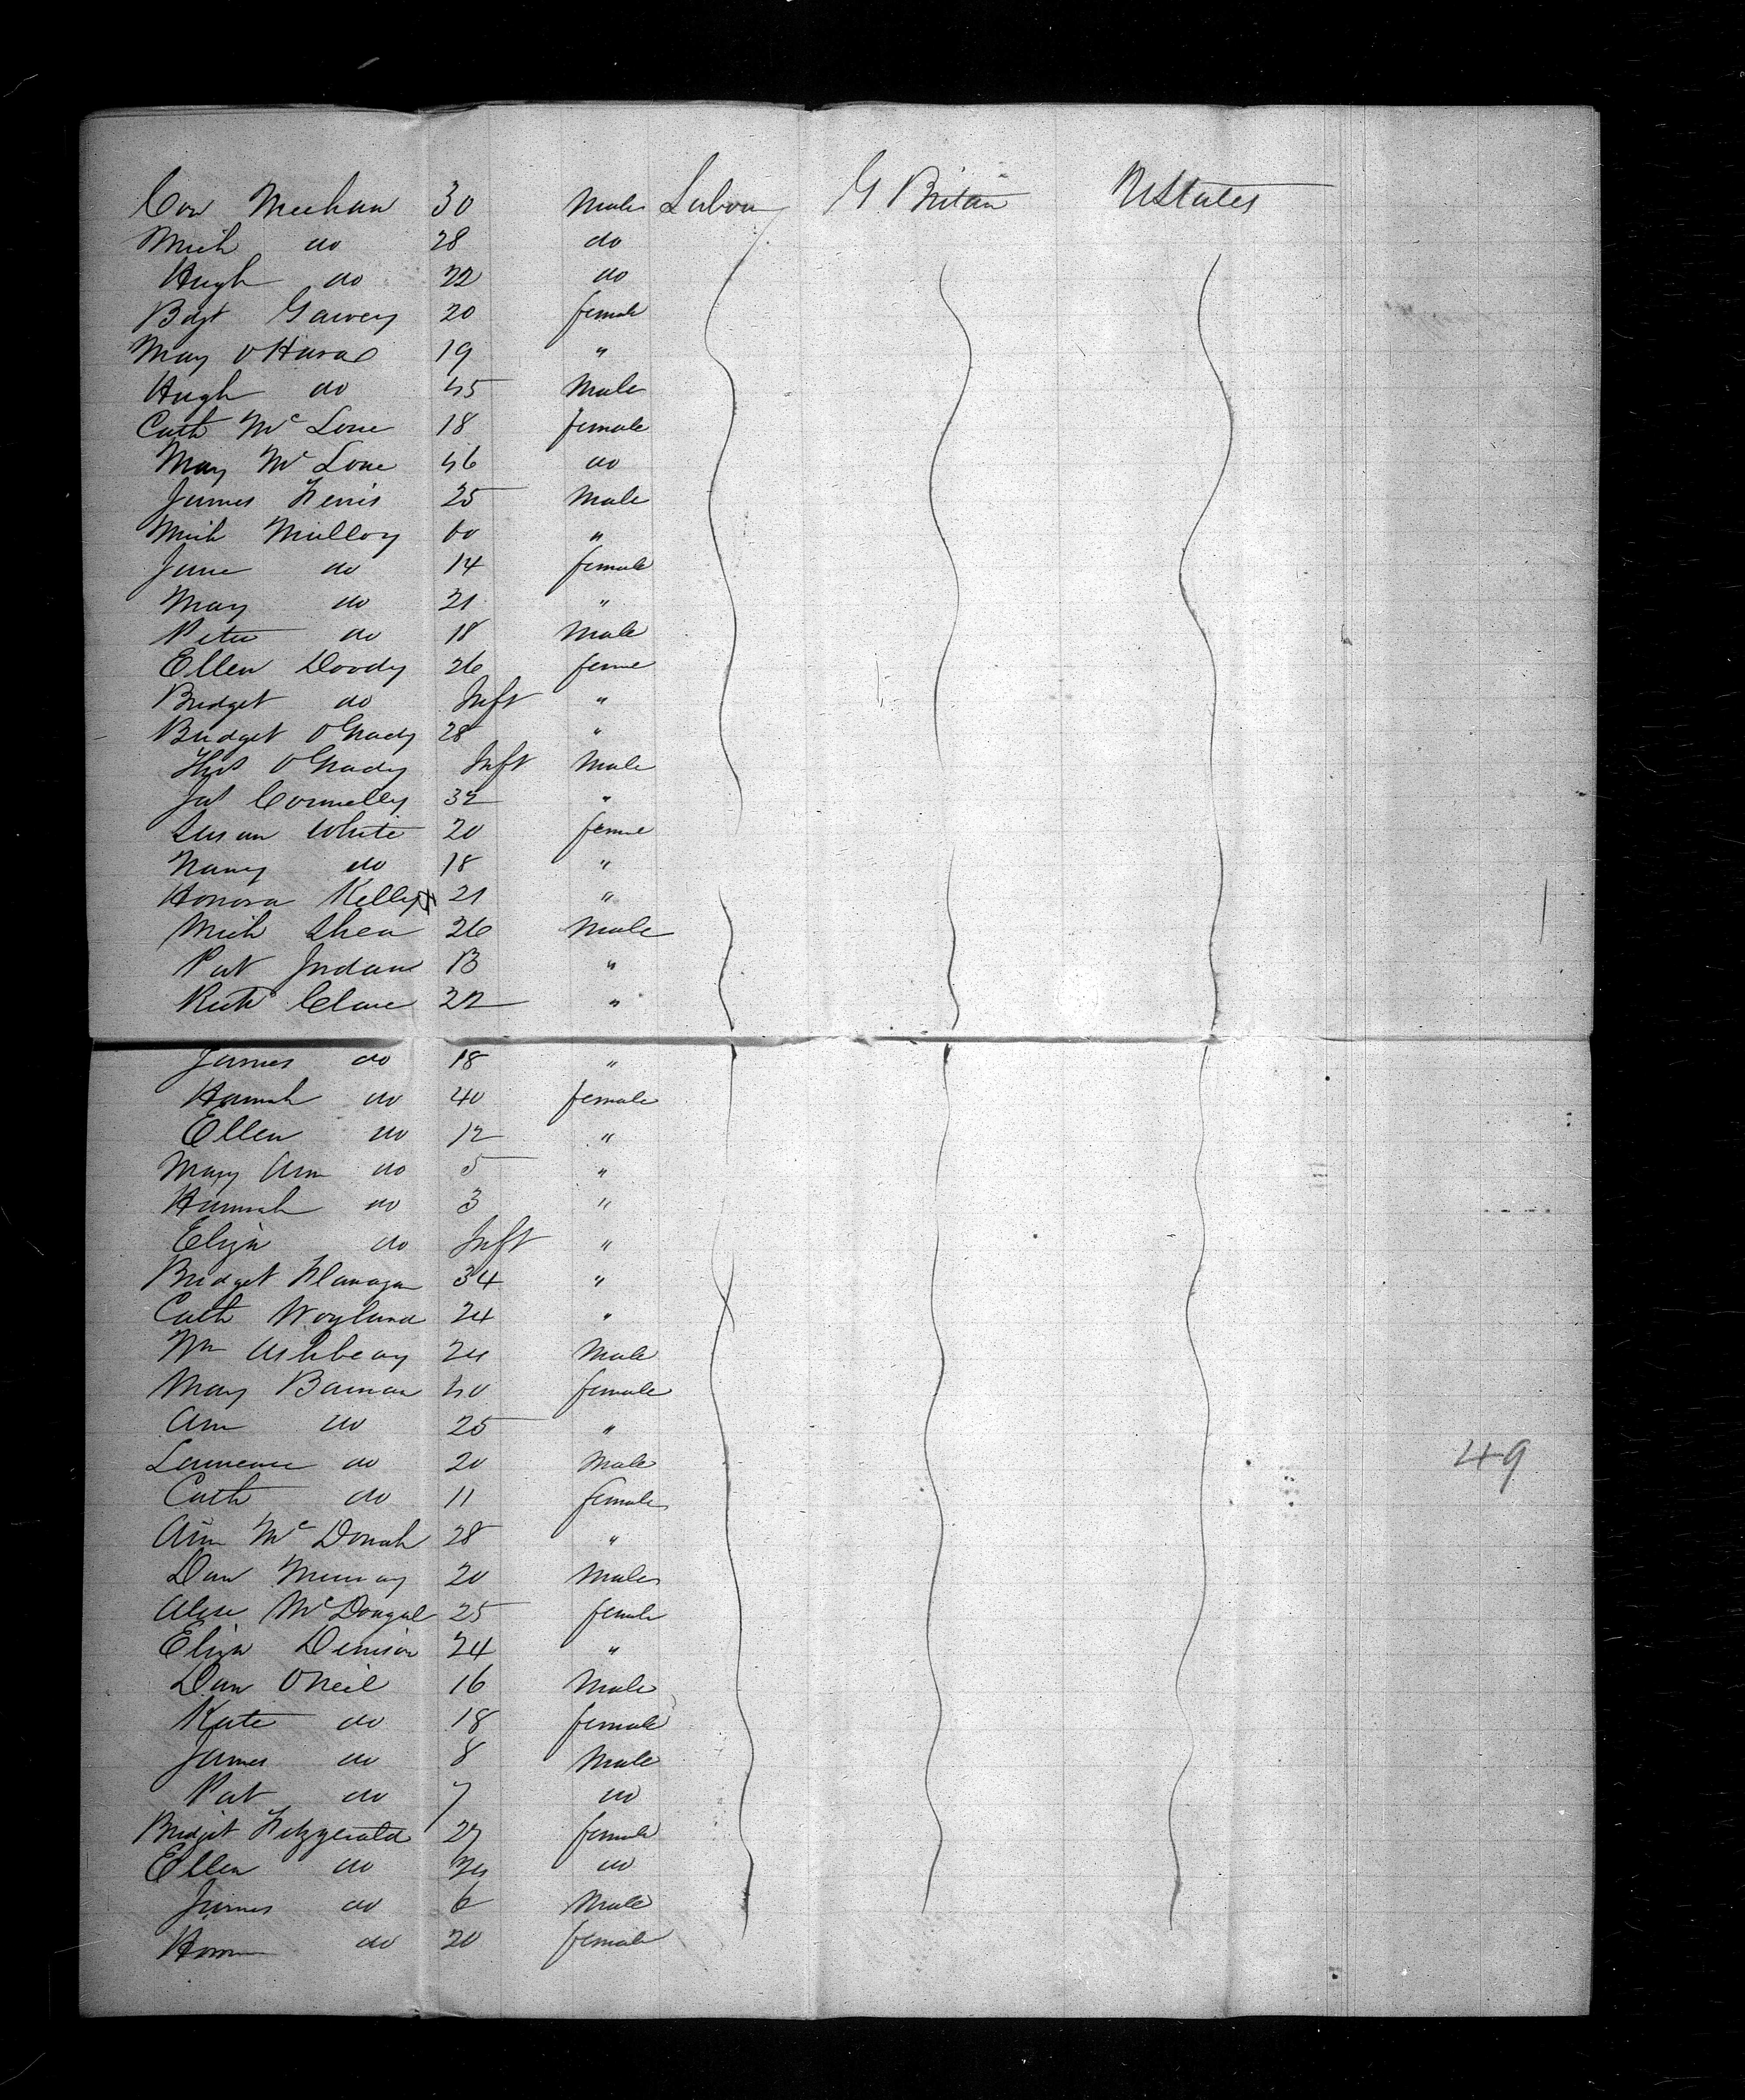 Con Meehan 30 Male Labour G. Britain U States
Mich do 28 do
Hugh do 22 do
Bdgt Garvey 20 female
Mary O Hara 19 "
Hugh do 45 Male
Cath Mc Lone 18 female
Mary Mc Lone 46 do
James Ferris 25 Male
Mich Mulloy 60 "
Jane do 14 female
Mary do 21 "
Peter do 18 Male
Ellen Doody 26 feme
Bridget do Inft "
Bridget O Grady 28 "
Thos O Grady Inft Male
Jas Connelly 32 "
Susan White 20 feme
Nancy do 18 "
Honora Kelly 21 "
Mich Shea 26 Male
Pat Jordan 13 "
Rich Clare 22 "
James do 18 "
Hannah do 40 female
Ellen do 12 "
Mary Ann do 5 "
Hannah do 3 "
Eliza do Inft "
Bridget Flanagan 34 "
Cath Woyland 24 "
Wm Ashbeay 24 Male
Mary Bannan 40 female
Ann do 25 "
Lawrence do 20 Male
Cath do 11 female
49
Ann Mc Donah 28 "
Dan Murray 20 Male
Alice Mc Dougal 25 female
Eliza Denison 24 "
Dan O Neil 16 Male
Kate do 18 female
James do 8 Male
Pat do 7 do
Bridget Fitzgerald 27 female
Ellen do 24 do
James do 6 Male
do 20 female